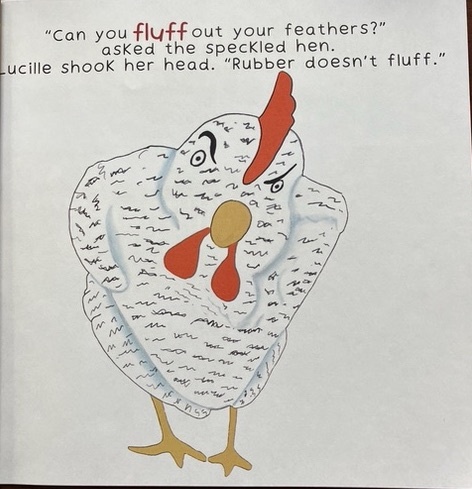 "Can you fluff out your feathers?"
asked the speckled hen.
Lucille shook her head. "Rubber doesn't fluff."